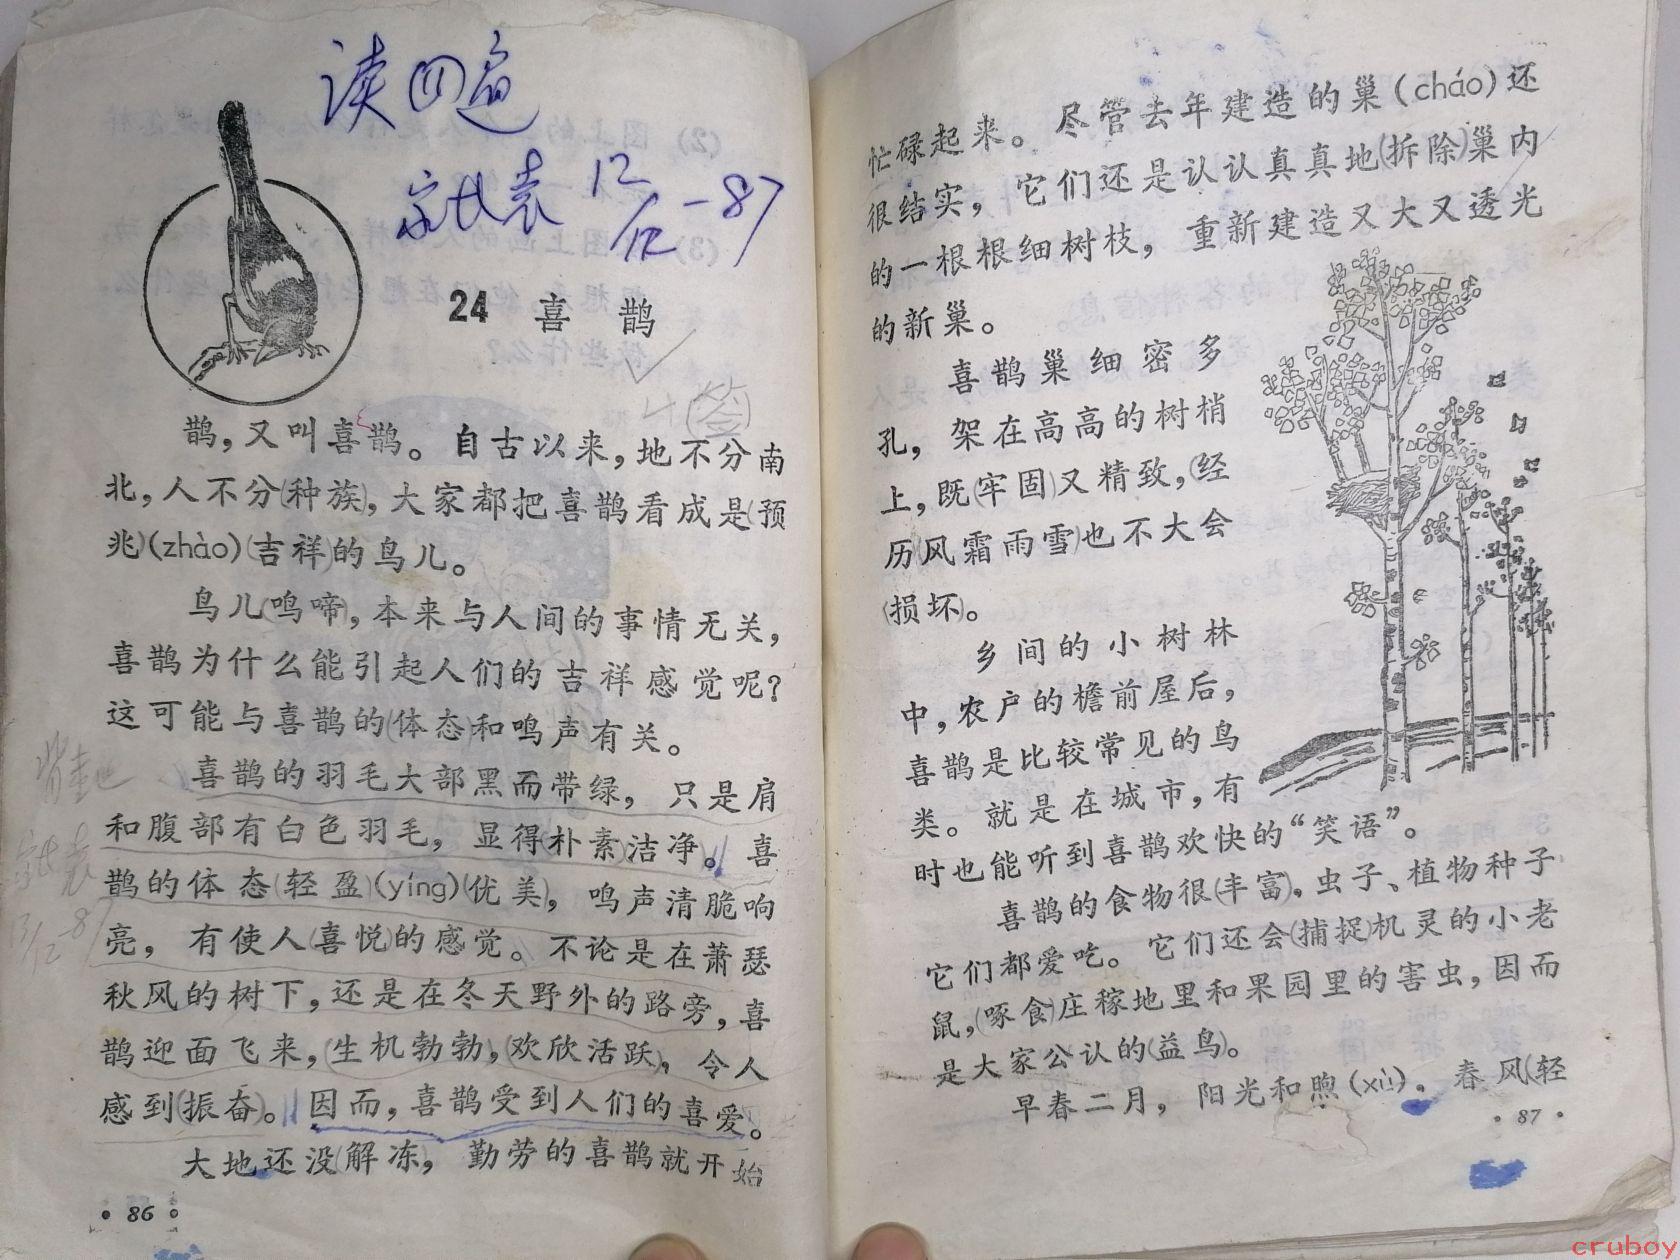 读四遍
家长袁 12/12-87
24 喜 鹊
签
鹊，又叫喜鹊。自古以来，地不分南
北，人不分(种族)，大家都把喜鹊看成是(预
兆)(zhào)(吉祥)的鸟儿。
鸟儿(鸣啼)，本来与人间的事情无关，
喜鹊为什么能引起人们的吉祥感觉呢？
这可能与喜鹊的(体态)和鸣声有关。
喜鹊的羽毛大部黑而带绿，只是肩
和腹部有白色羽毛，显得(朴素)洁净。喜
鹊的体态(轻盈)(yíng)(优美)，鸣声清脆响
亮，有使人(喜悦)的感觉。不论是在萧瑟
秋风的树下，还是在冬天野外的路旁，喜
鹊迎面飞来，(生机勃勃)，(欢欣活跃)，令人
感到(振奋)。因而，喜鹊受到人们的喜爱。
大地还没(解冻)，勤劳的喜鹊就开始
家长袁
13/12-87
· 86 ·
忙碌起来。尽管去年建造的巢(cháo)还
很结实，它们还是认认真真地(拆除)巢内
的一根根细树枝，重新建造又大又透光
的新巢。
喜鹊巢细密多
孔，架在高高的树梢
上，既(牢固)又精致，(经
历)(风霜雨雪)也不大会
(损坏)。
乡间的小树林
中，农户的檐前屋后，
喜鹊是比较常见的鸟
类。就是在城市，有
时也能听到喜鹊欢快的“笑语”。
喜鹊的食物很(丰富)，虫子、植物种子
它们都爱吃。它们还会(捕捉)机灵的小老
鼠，(啄食)庄稼地里和果园里的害虫，因而
是大家公认的(益鸟)。
早春二月，阳光和煦(xù)，春风(轻
· 87 ·
cruboy